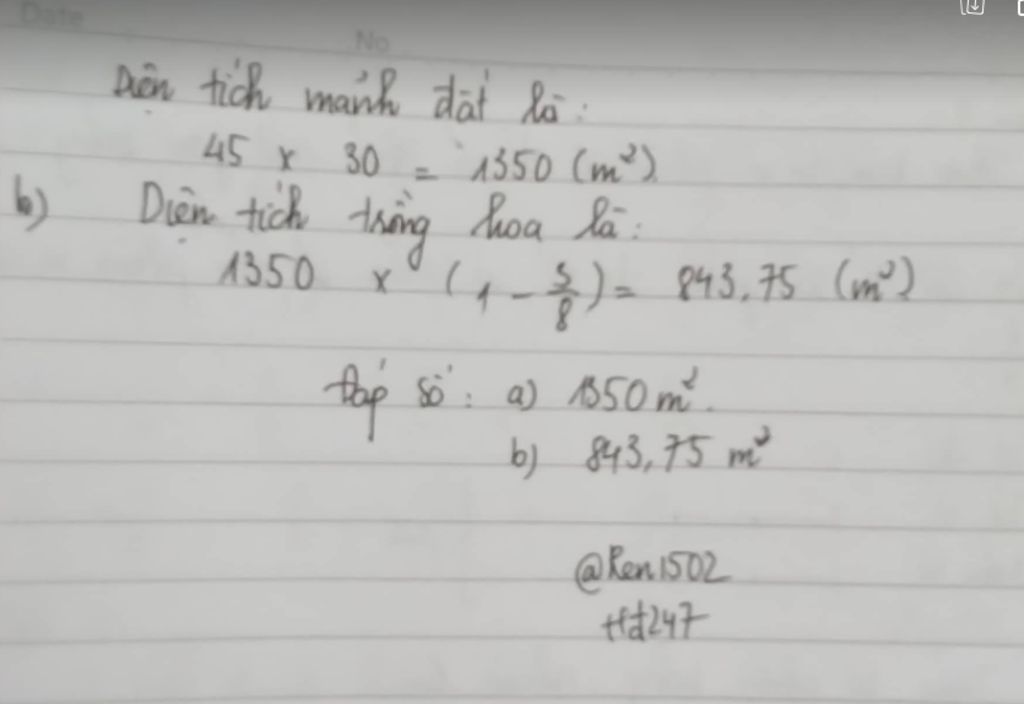 Date
No
Diện tích mảnh đất là:
45 x 30 = 1350 (m²)
b) Diện tích trồng hoa là:
1350 x (1 - 3/8) = 843,75 (m²)
Đáp số: a) 1350 m².
b) 843,75 m²
@Ren1502
Hd247